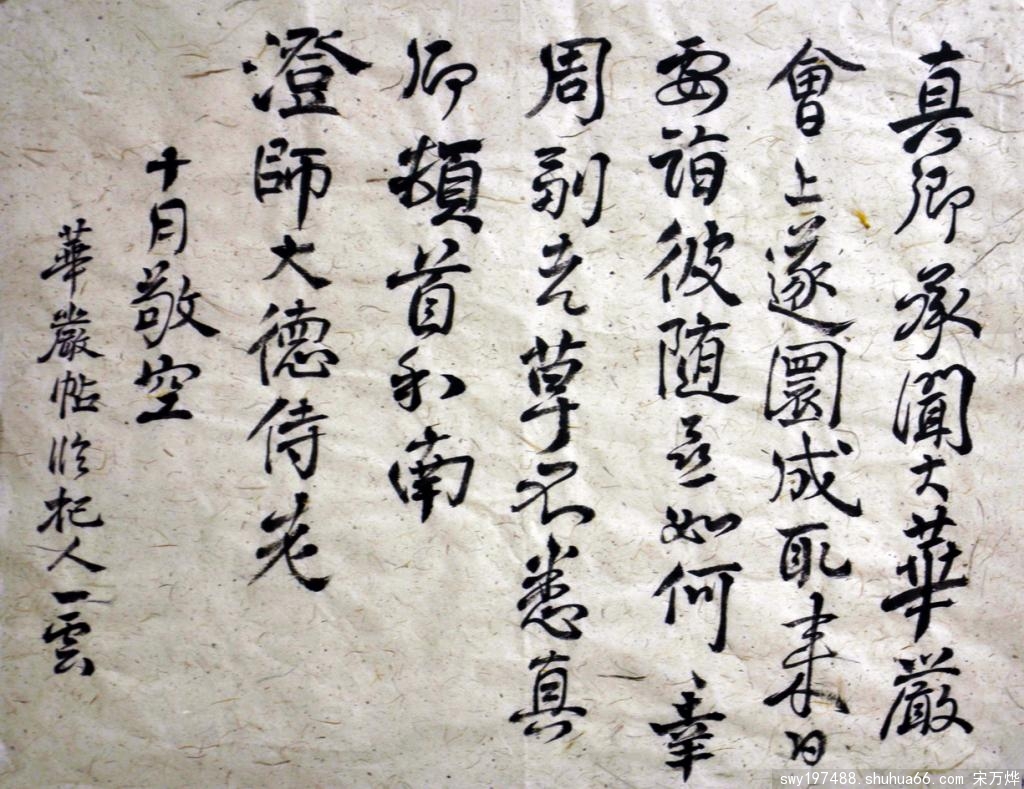 真卿承聞大華嚴
會上遂圜成取來日
要詣彼隨喜如何幸
周副老草不悉真
卿頓首和南
澄師大德侍者
十月敬空
華嚴帖臨杞人一雲
swy197488.shuhua66.com 宋万烨